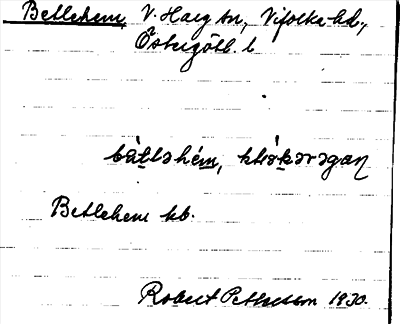 Betlehem, V. Harg sn, Vifolka hd.,
Östergötl. l
bètləhém,
Betlehem kb.
Robert Pettersson 1930.